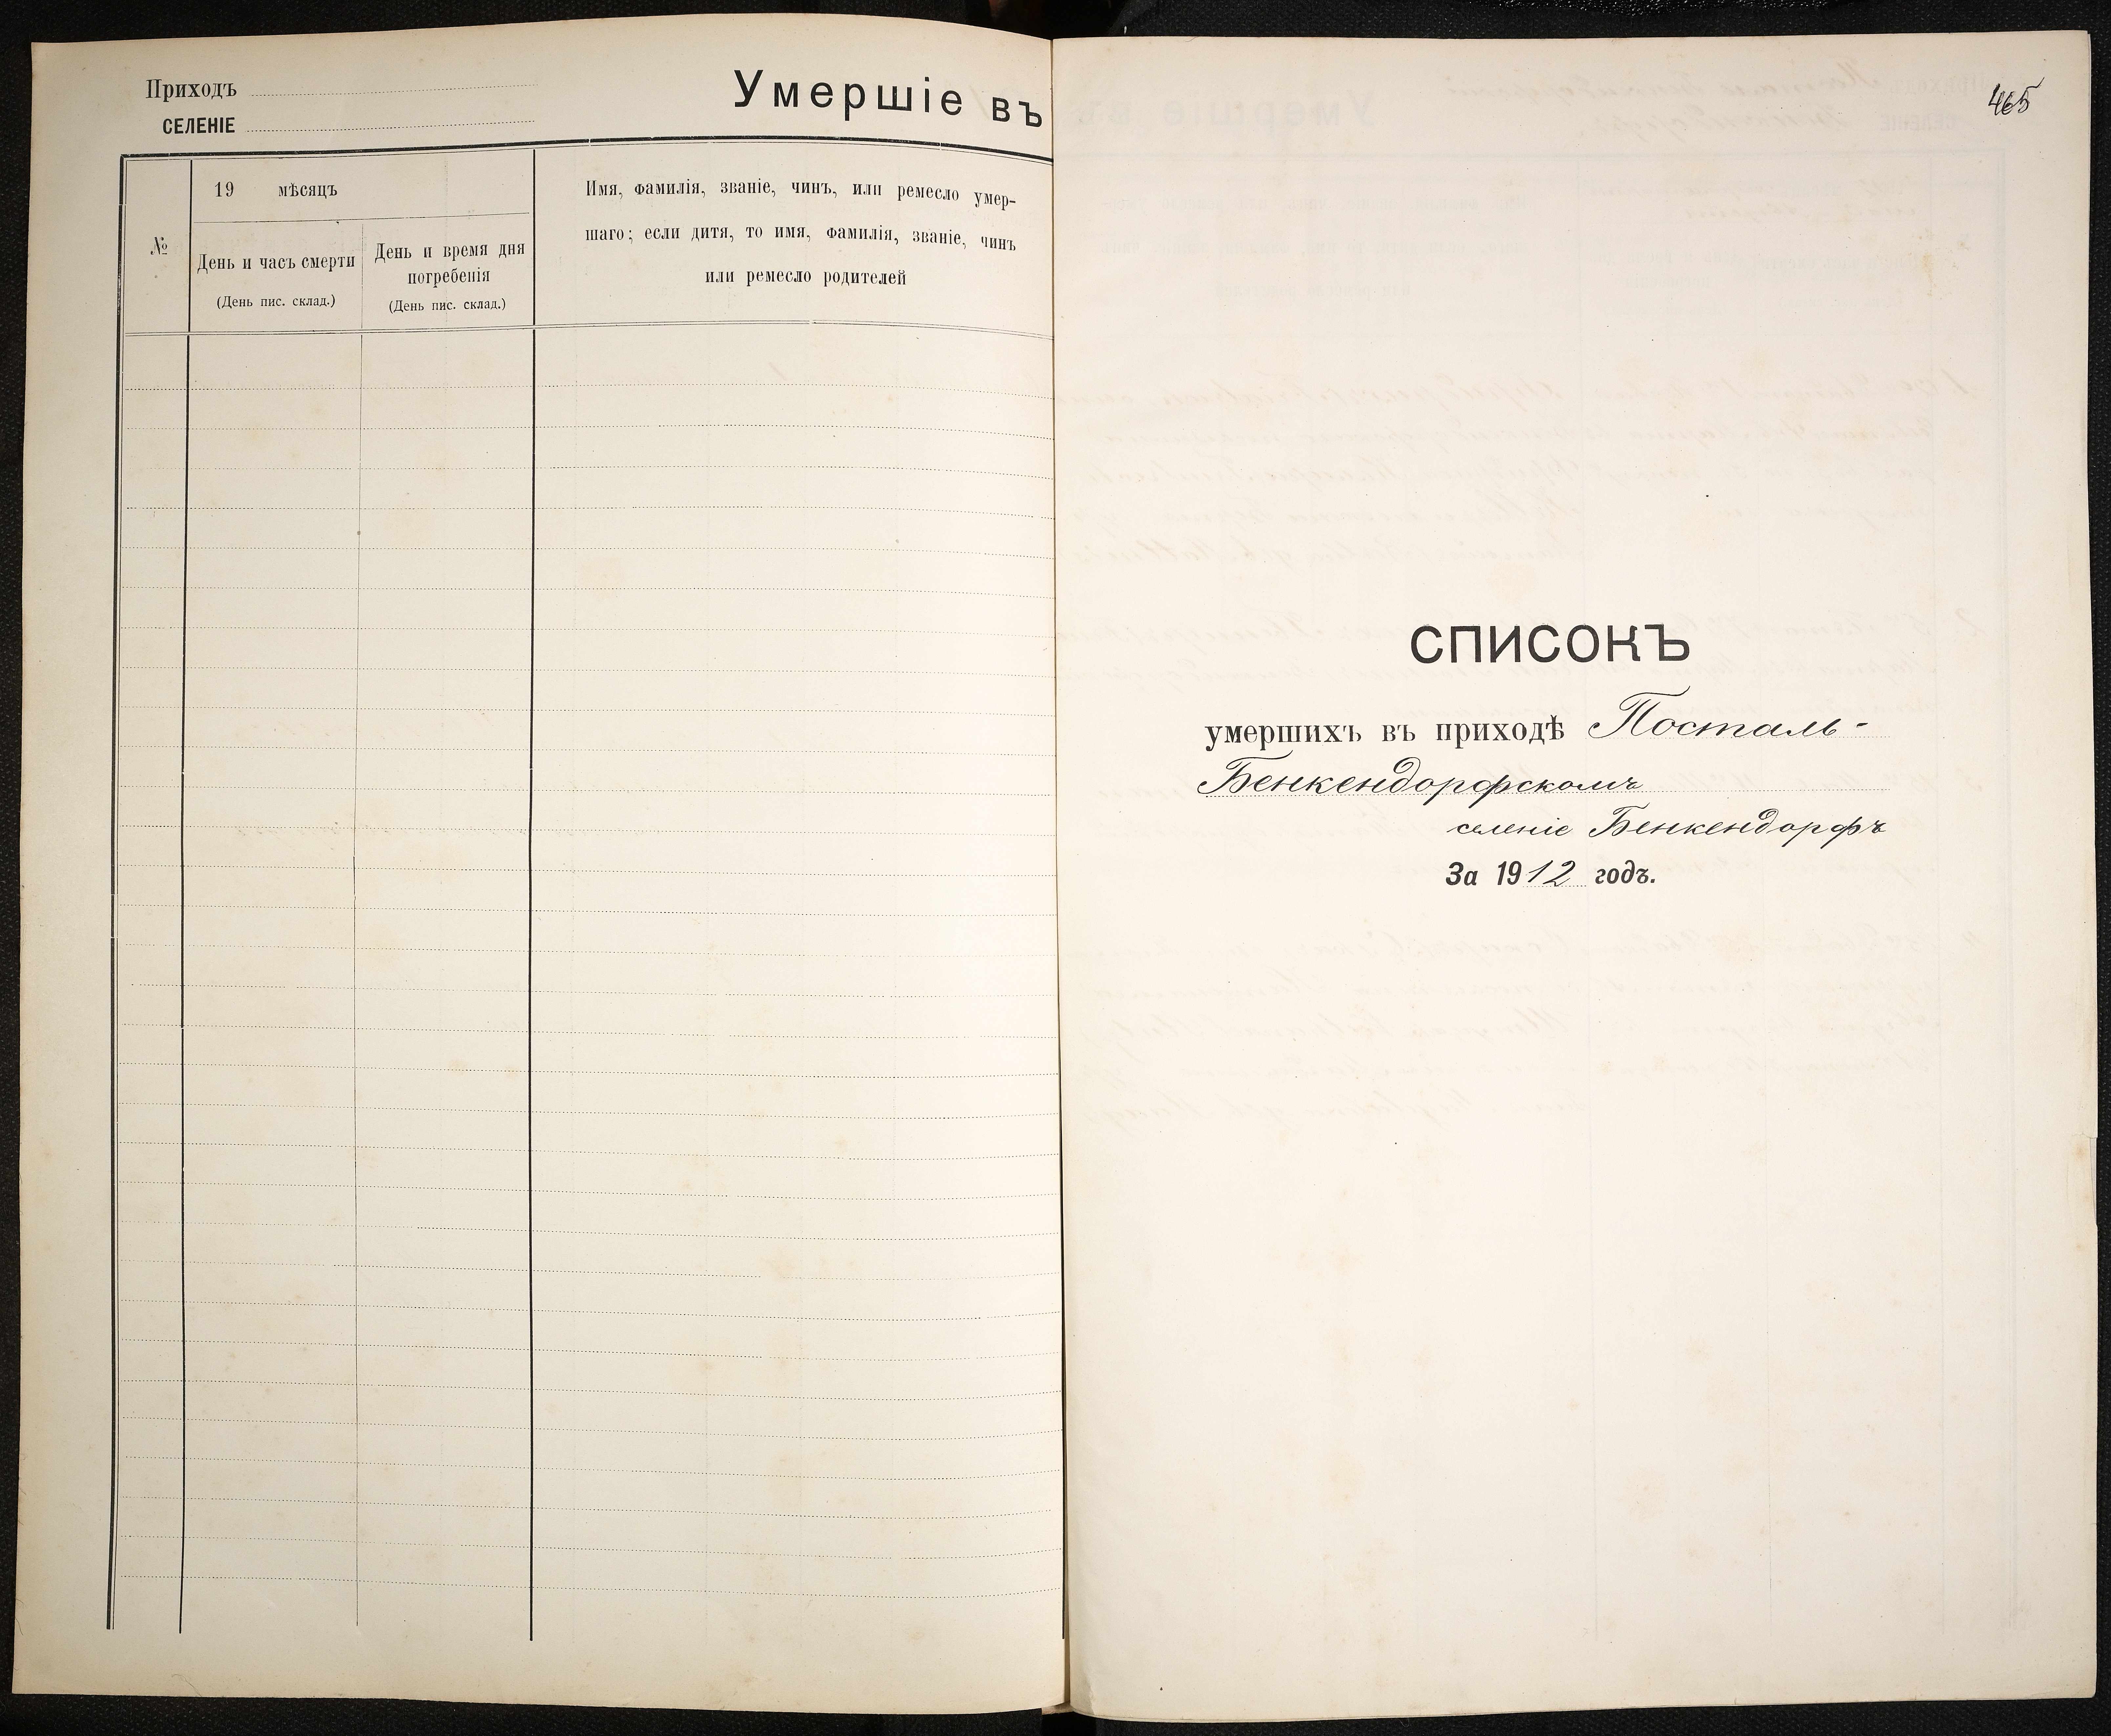 Приходъ
СЕЛЕНІЕ
Умершіе въ
№
19 мѣсяцъ
День и часъ смерти
(День пис. склад.)
День и время дня
погребенія
(День пис. склад.)
Имя, фамилія, званіе, чинъ, или ремесло умер-
шаго; если дитя, то имя, фамилія, званіе, чинъ
или ремесло родителей
465
СПИСОКЪ
умершихъ въ приходѣ Посталь-
Бенкендорфскомъ
селеніе Бенкендорфъ
За 1912 годъ.